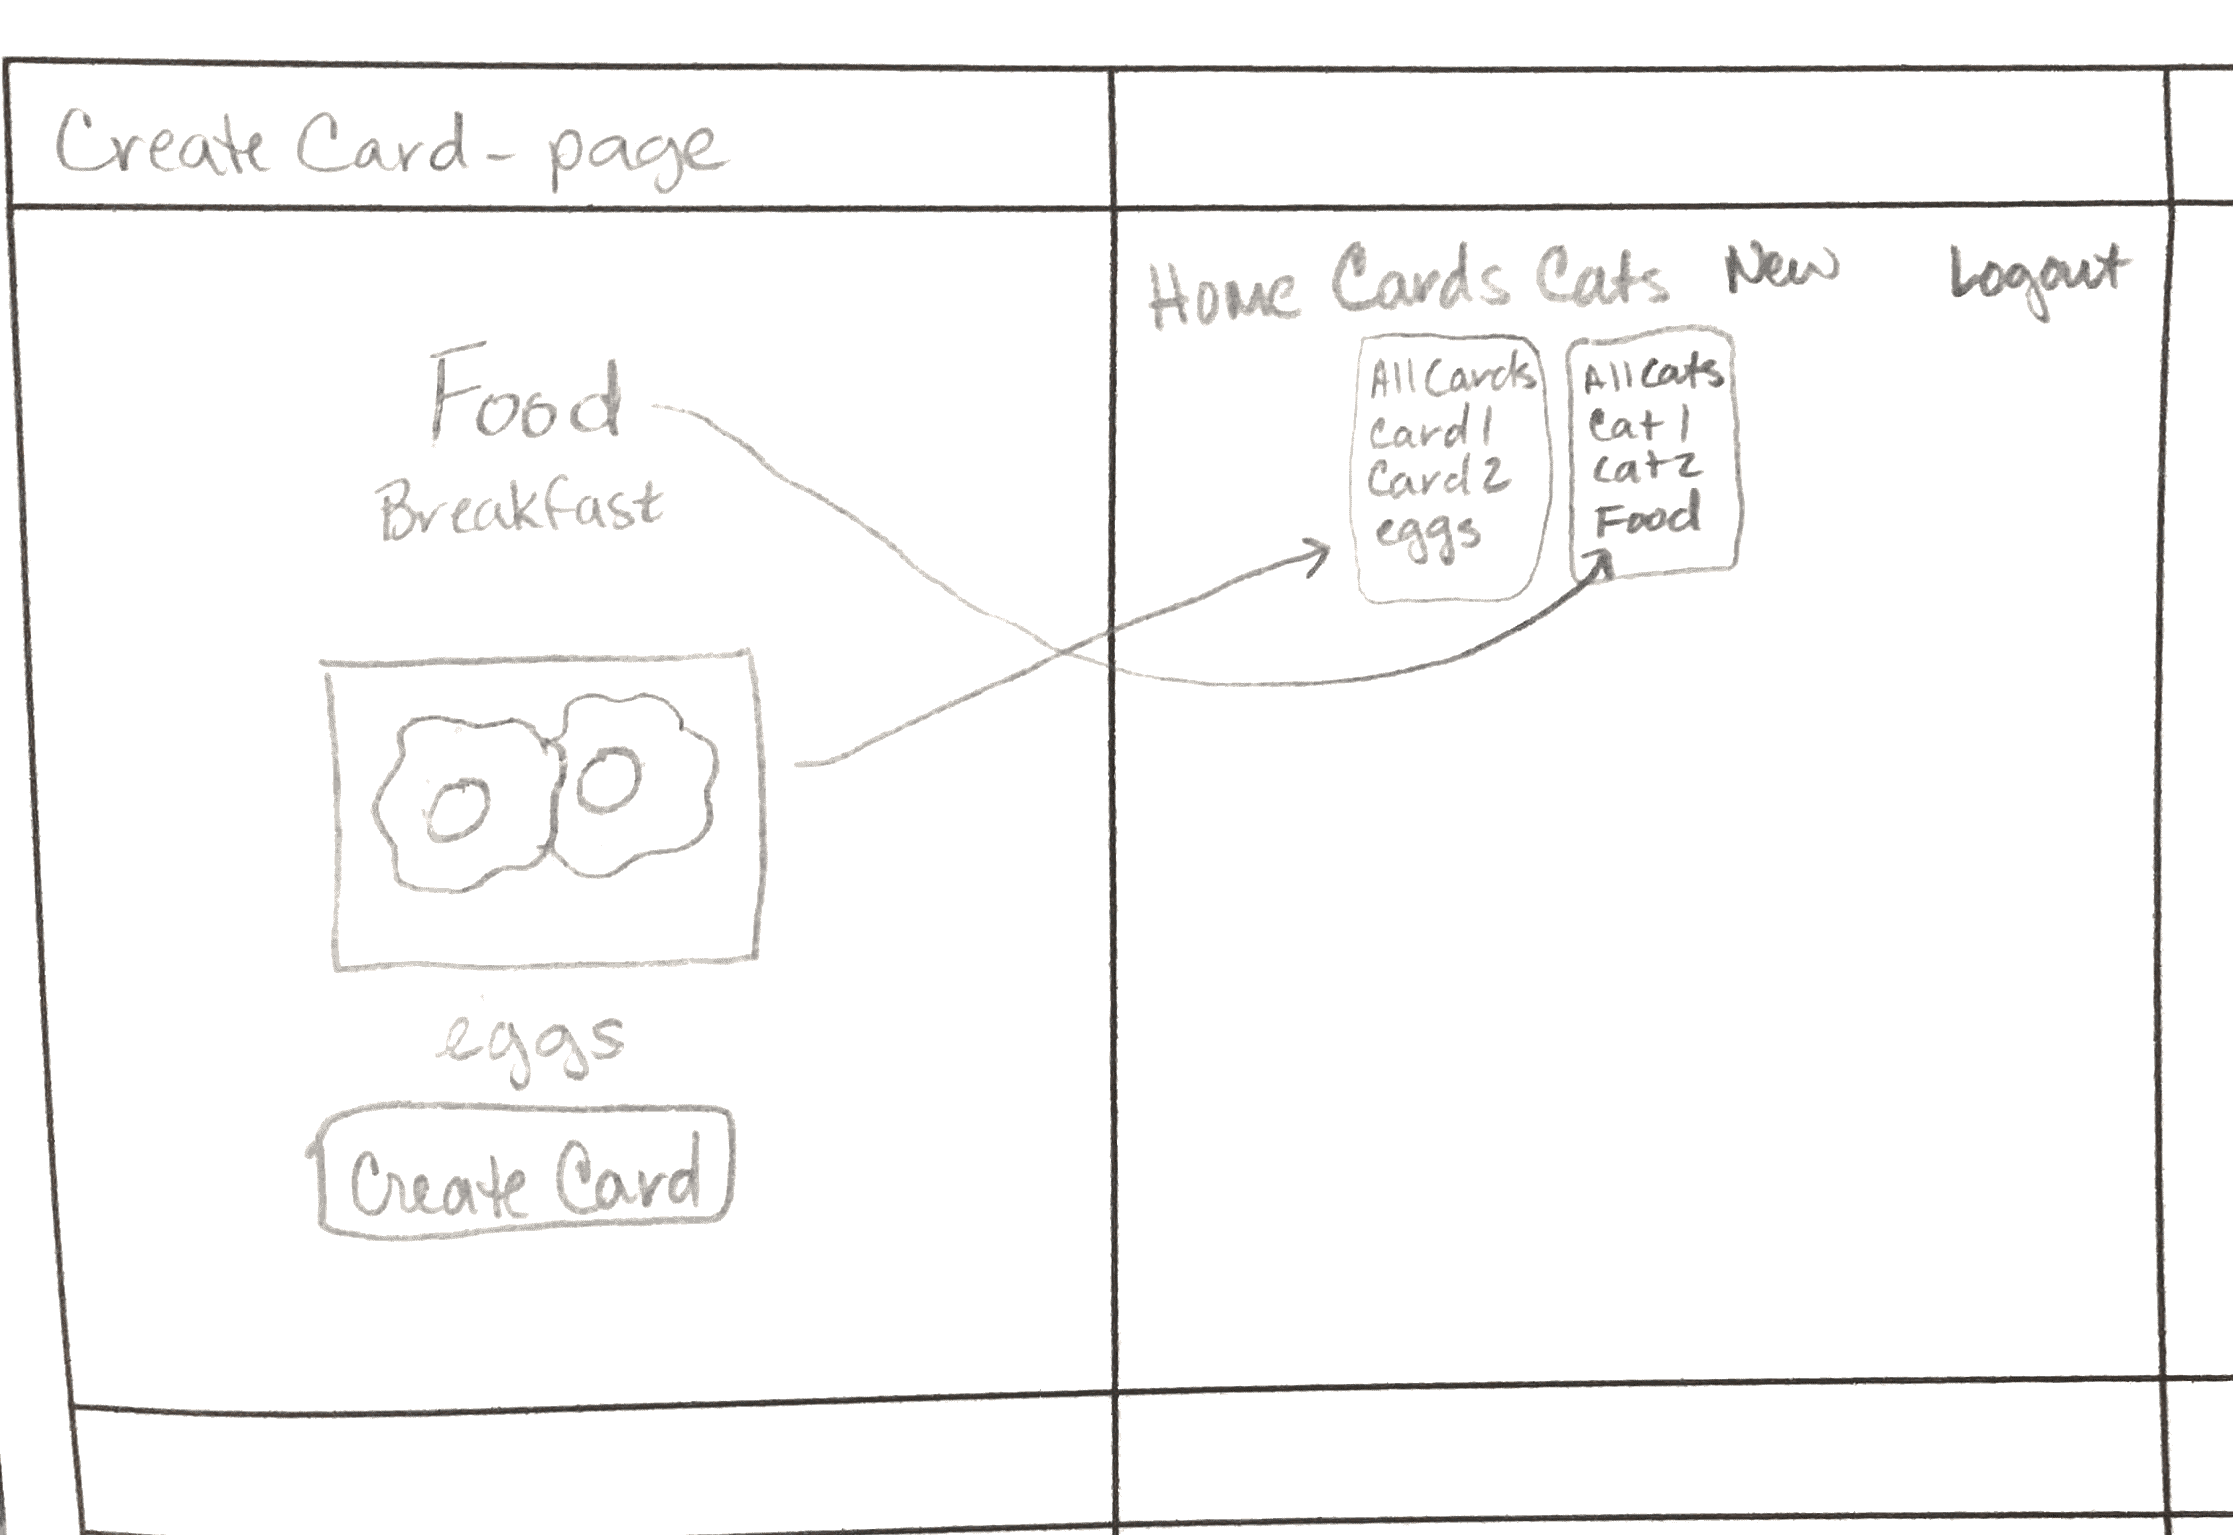 Create Card - page
Food
Breakfast
eggs
Create Card
Home Cards Cats New Logout
All Cards
Card 1
Card 2
eggs
All Cats
Cat 1
Cat 2
Food